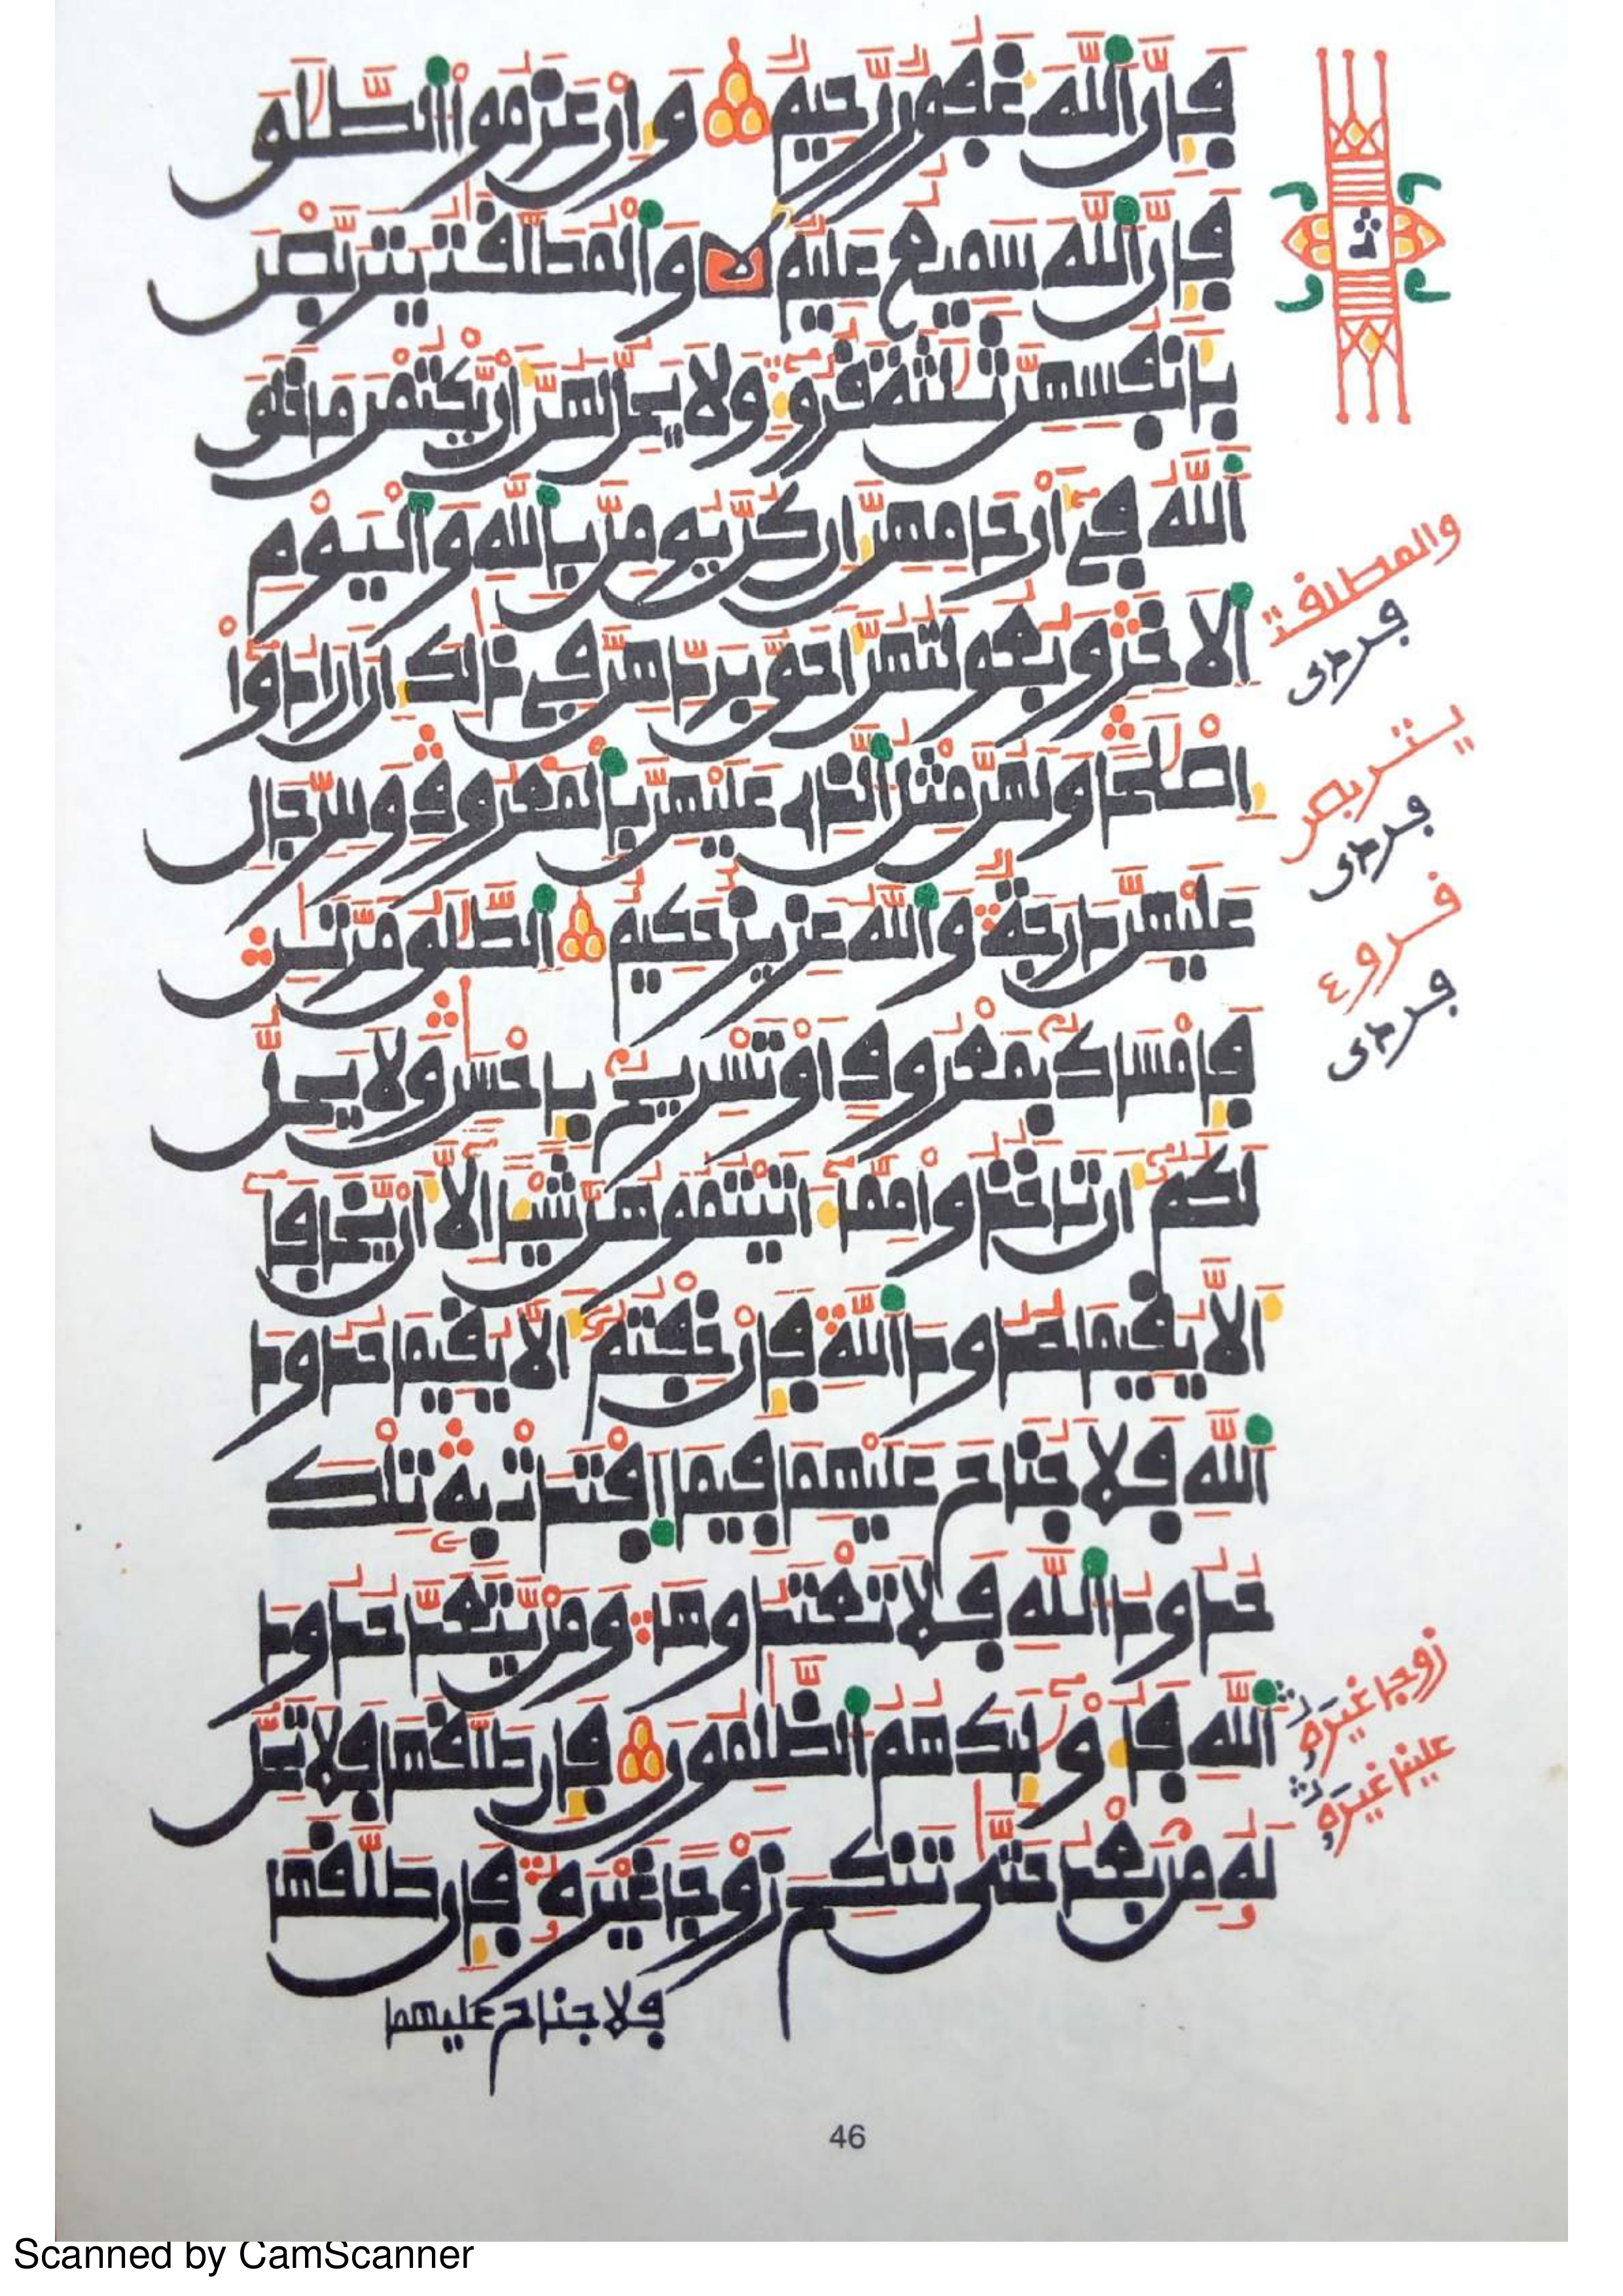 فإن الله غفور رحيم وإن عزموا الطلق
فإن الله سميع عليم والمطلقت يتربصن
بأنفسهن ثلثة قروء ولا يحل لهن أن يكتمن ما خلق
الله في أرحامهن إن كن يومن بالله واليوم
الاخر وبعولتهن أحق بردهن في ذلك إن أرادوا
إصلحا ولهن مثل الذي عليهن بالمعروف وللرجال
عليهن درجة والله عزيز حكيم الطلق مرتن
فإمساك بمعروف أو تسريح بإحسن ولا يحل
لكم أن تاخذوا مما ءاتيتموهن شيئا إلا أن يخافا
ألا يقيما حدود الله فإن خفتم ألا يقيما حدود
الله فلا جناح عليهما فيما افتدت به تلك
حدود الله فلا تعتدوها ومن يتعد حدود
الله فأوليك هم الظلمون فإن طلقها فلا تحل
له من بعد حتى تنكح زوجا غيره فإن طلقها
فلا جناح عليهما
والمطلقت
يتربصن
قروء
زوجا غيره
علينا غيره
46
Scanned by CamScanner